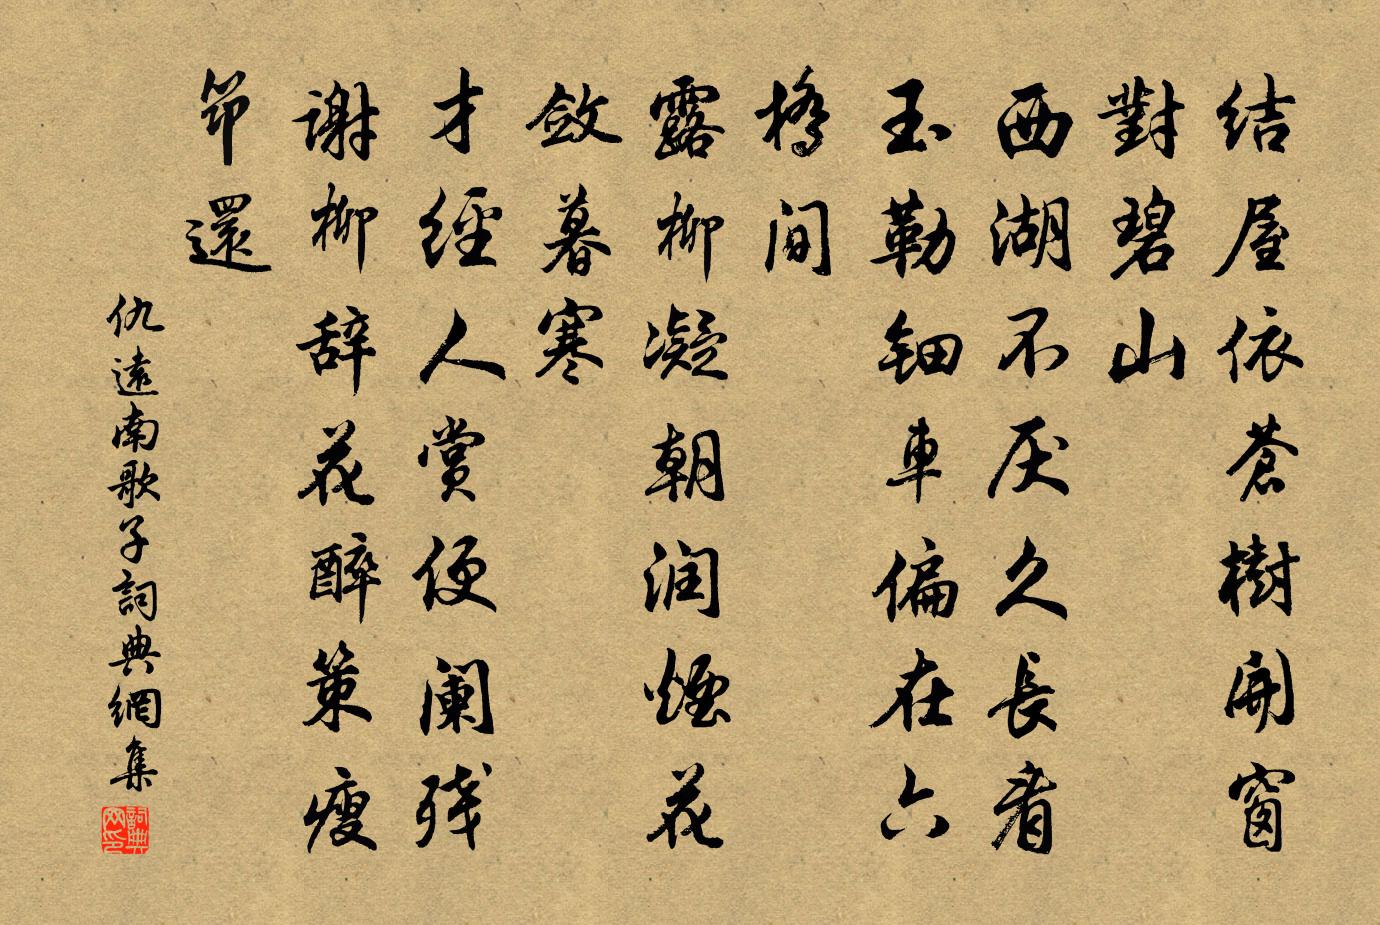 结屋依蒼樹開窗
對碧山
西湖不厌久長看
玉勒钿車偏在六
橋間
露柳凝朝润煙花
敛暮寒
才經人赏便阑残
谢柳辞花醉策瘦
筇還
仇遠南歌子詞典網集
詞典网印